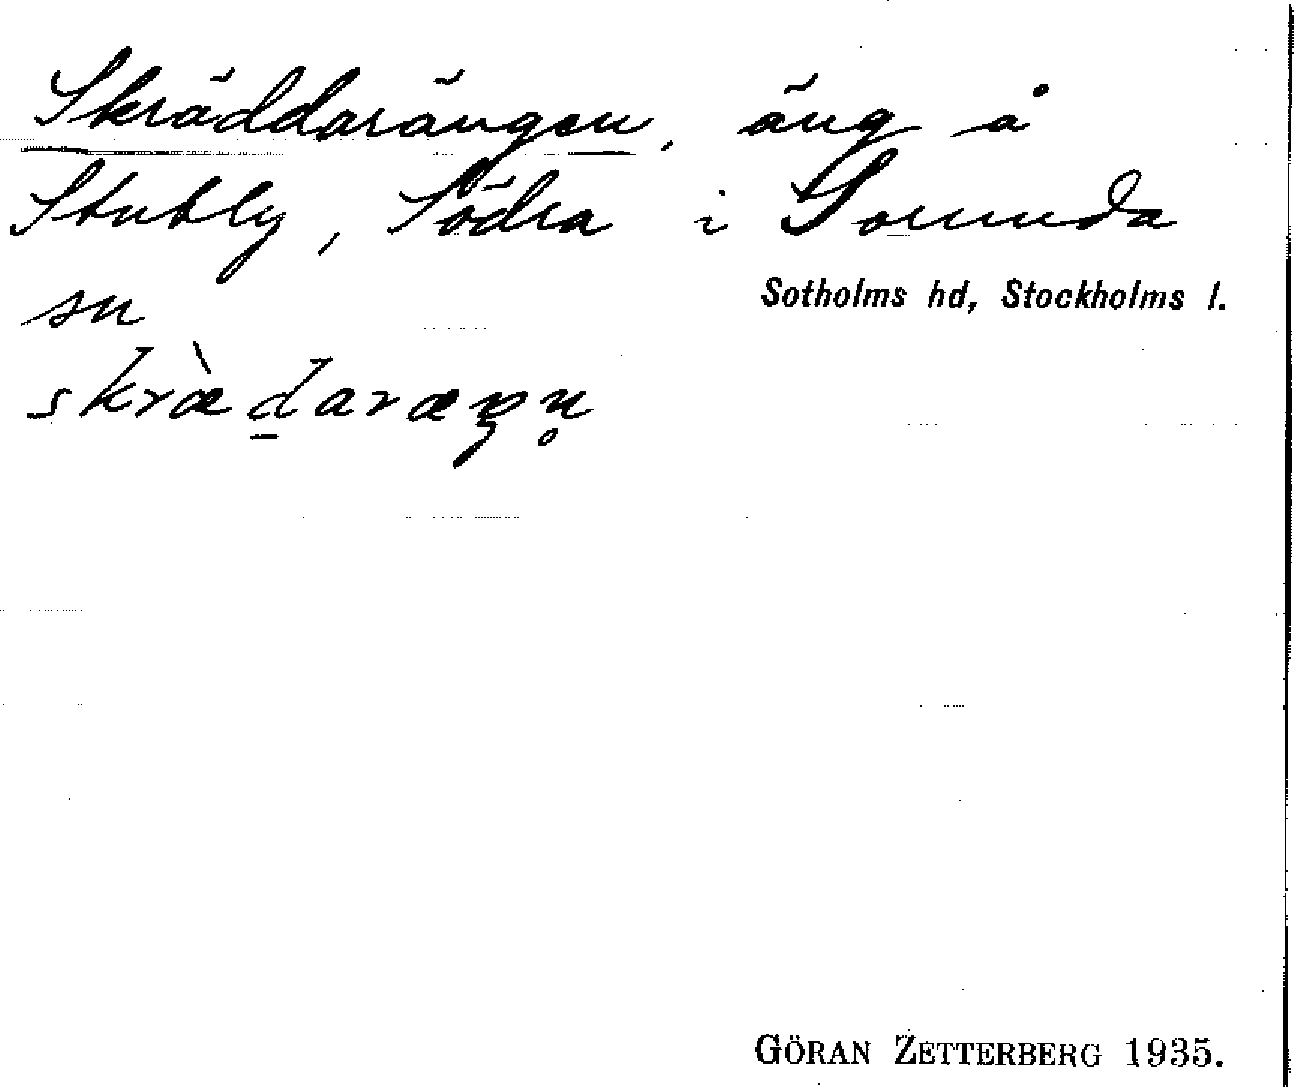 Skräddarängen, äng å
Stubby, Södra i Sorunda
sn
Sotholms hd, Stockholms l.
skræ̀ḏaræŋn̥
GÖRAN ZETTERBERG 1935.